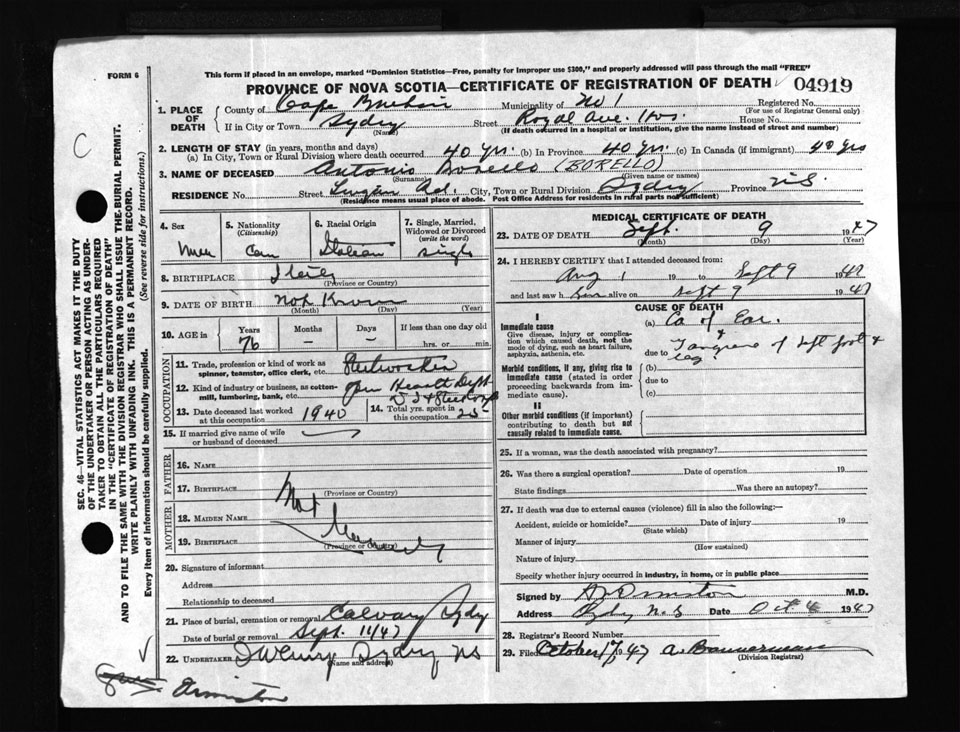 FORM 6
This form if placed in an envelope, marked "Dominion Statistics—Free, penalty for improper use $300," and properly addressed will pass through the mail "FREE"
PROVINCE OF NOVA SCOTIA—CERTIFICATE OF REGISTRATION OF DEATH 04919
C
1. PLACE OF DEATH County of Cape Breton Municipality of No 1 Registered No.
(For use of Registrar General only)
If in City or Town Sydney Street Royal Ave. Hos. House No.
(Name) (If death occurred in a hospital or institution, give the name instead of street and number)
2. LENGTH OF STAY (in years, months and days)
(a) In City, Town or Rural Division where death occurred 40 yrs. (b) In Province 40 yrs. (c) In Canada (if immigrant) 40 yrs
3. NAME OF DECEASED Antonio Borello (BORELLO)
(Surname) (Given name or names)
RESIDENCE No. Street Rd. City, Town or Rural Division Sydney Province N.S.
(Residence means usual place of abode. Post Office Address for residents in rural parts not sufficient)
4. Sex
5. Nationality (Citizenship)
6. Racial Origin
7. Single, Married, Widowed or Divorced (write the word)
Can Italian single
8. BIRTHPLACE
(Province or Country)
9. DATE OF BIRTH Not Known
(Month) (Day) (Year)
10. AGE in Years Months Days If less than one day old
76 – – hrs. or min.
OCCUPATION
11. Trade, profession or kind of work as spinner, teamster, office clerk, etc. Steelworker
12. Kind of industry or business, as cotton-mill, lumbering, bank, etc. Open Hearth Dept
13. Date deceased last worked at this occupation 1940
14. Total yrs. spent in this occupation 25
15. If married give name of wife or husband of deceased
FATHER
16. NAME
17. BIRTHPLACE Not
(Province or Country)
MOTHER
18. MAIDEN NAME
19. BIRTHPLACE
(Province or Country)
20. Signature of informant
Address
Relationship to deceased
21. Place of burial, cremation or removal Calvary Sydney
Date of burial or removal Sept. 11/47
22. UNDERTAKER Sydney NS
(Name and address)
Ormiston
MEDICAL CERTIFICATE OF DEATH
23. DATE OF DEATH Sept. 9 1947
(Month) (Day) (Year)
24. I HEREBY CERTIFY that I attended deceased from:
Aug 1 19 to Sept 9 1947
and last saw him alive on Sept 9 1947
CAUSE OF DEATH
I
Immediate cause
Give disease, injury or complication which caused death, not the mode of dying, such as heart failure, asphyxia, asthenia, etc.
(a) Ca of Ear.
&
due to Gangrene of left foot & leg
Morbid conditions, if any, giving rise to immediate cause (stated in order proceeding backwards from immediate cause)
(b)
due to
(c)
II
Other morbid conditions (if important) contributing to death but not causally related to immediate cause.
25. If a woman, was the death associated with pregnancy?
26. Was there a surgical operation? Date of operation 19
State findings Was there an autopsy?
27. If death was due to external causes (violence) fill in also the following:—
Accident, suicide or homicide? Date of injury 19
(State which)
Manner of injury
(How sustained)
Nature of injury
Specify whether injury occurred in industry, in home, or in public place
Signed by Ormiston M.D.
Address Sydney N.S Date Oct 1947
28. Registrar's Record Number
29. Filed October 1947 A. Bannerman
(Division Registrar)
SEC. 46—VITAL STATISTICS ACT MAKES IT THE DUTY
OF THE UNDERTAKER OR PERSON ACTING AS UNDER-
TAKER TO OBTAIN ALL THE PARTICULARS REQUIRED
IN THE "CERTIFICATE OF REGISTRATION OF DEATH"
AND TO FILE THE SAME WITH THE DIVISION REGISTRAR WHO SHALL ISSUE THE BURIAL PERMIT.
WRITE PLAINLY WITH UNFADING INK. THIS IS A PERMANENT RECORD.
Every item of Information should be carefully supplied. (See reverse side for instructions.)